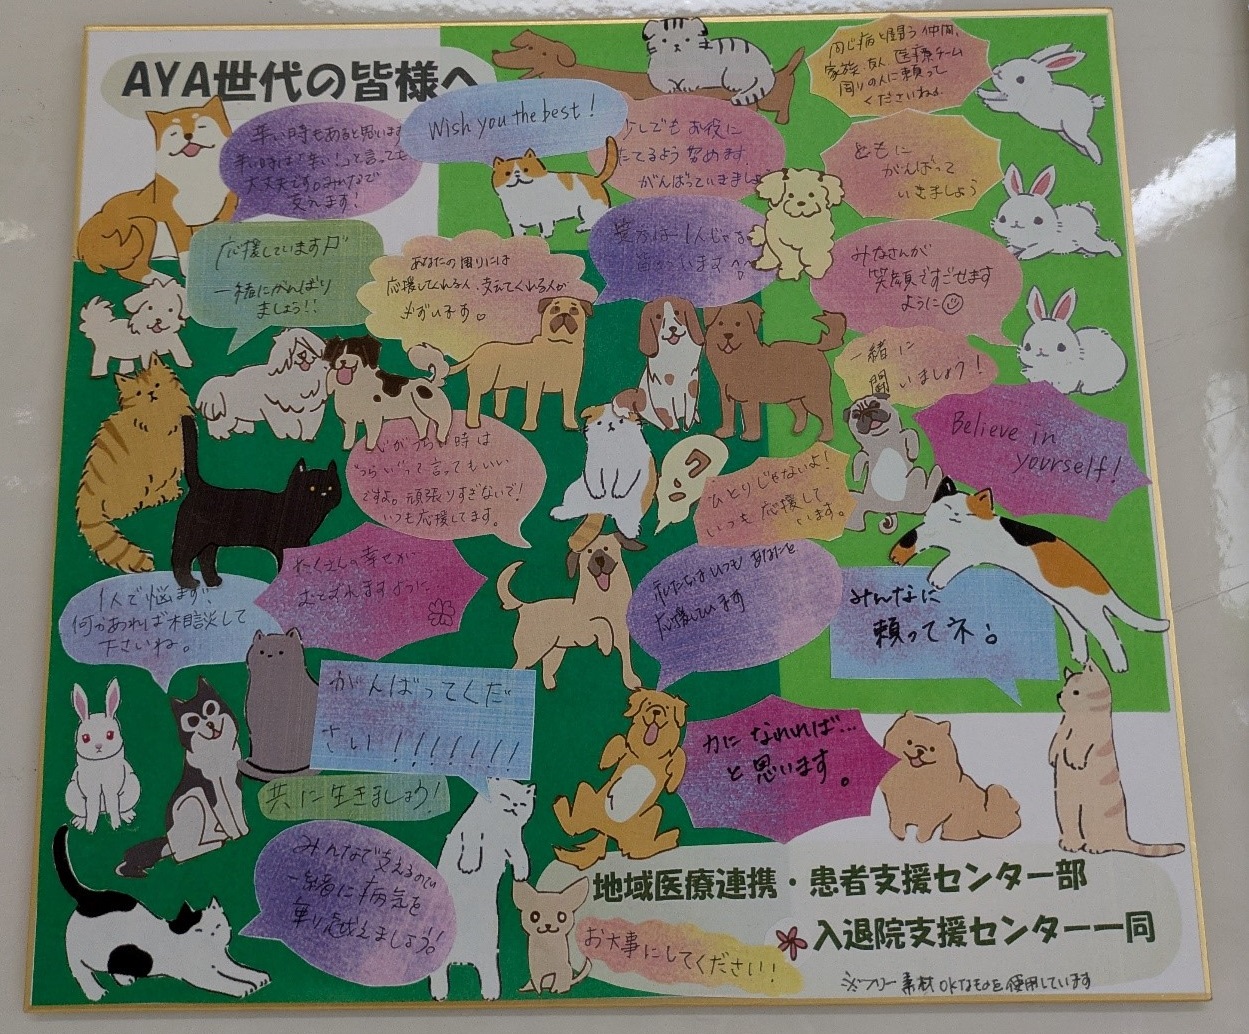 AYA世代の皆様へ
辛い時もあると思います
辛い時は「辛い!」と言っても
大丈夫です。みんなで
支えます!
Wish you the best!
少しでもお役に
たてるよう努めます。
がんばっていきましょ
同じ病と闘う仲間、
家族、友人、医療チーム
周りの人に頼って
くださいね。
ともに
がんばって
いきましょう
応援しています
一緒にがんばり
ましょう!!
あなたの周りには
応援してくれる人、支えてくれる人が
必ずいます。
は1人じゃ
います
みなさんが
笑顔ですごせます
ように
一緒に
闘いましょう!
Believe in
yourself!
心がつらい時は
"つらい"って言ってもいい
ですよ。頑張りすぎないで!
いつも応援してます。
?
ひとりじゃないよ!
いつも応援して
います。
たくさんの幸せが
おとずれますように
1人で悩まず
何かあれば相談して
下さいね。
私たちはいつもあなたを
応援しています
みんなに
頼ってネ。
がんばってくだ
さい!!!!!!!
力になれれば…
と思います。
共に生きましょう!
みんなで支えるので
一緒に病気を
乗り越えましょう!
地域医療連携・患者支援センター部
入退院支援センター一同
お大事にしてください!
※フリー素材OKなものを使用しています